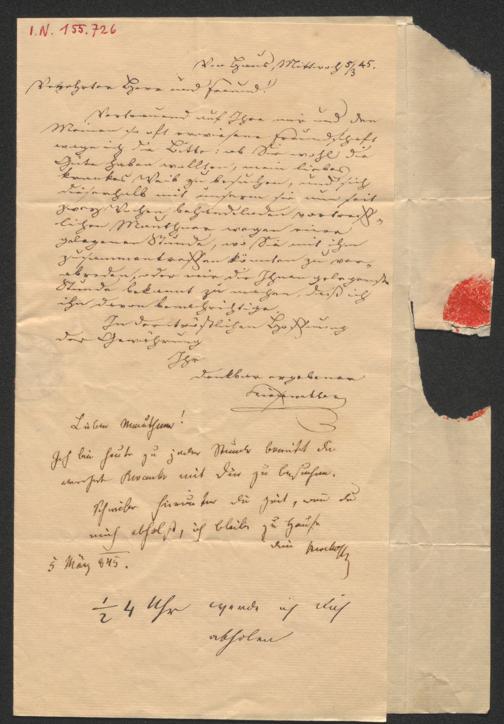 I.N. 155.726
Von Haus, Mittwoch 5/3 45.
Verehrter Herr und Freund!
Vertrauend auf Ihre mir und den
Meinen so oft erwiesene Freundschaft
wage ich die Bitte: ob Sie wohl die
Güte haben wollten, mein liebes
krankes Weib zu besuchen, und sich
dießerhalb mit unserm sie nun seit
zwey Wochen behandelnden vortreff-
lichen Mauthner wegen einer
gelegenen Stunde, wo Sie mit ihm
zusammentreffen könnten zu ver-
abreden, oder mir die Ihnen gelegenste
Stunde bekannt zu machen, daß ich
ihn davon benachrichtige.
In der tröstlichen Hoffnung
der Gewährung
Ihr
dankbar ergebener
Lieber Mauthner!
Ich bin heute zu jeder Stunde bereit die
werthe Kranke mit Dir zu besuchen.
Schreibe hierunter die Zeit, wann du
mich abholst, ich bleibe zu Hause
dein
5 März 845.
1/2 4 Uhr werde ich Dich
abholen